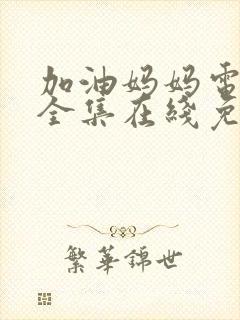 加油妈妈電
全集在綫免
繁華錦世